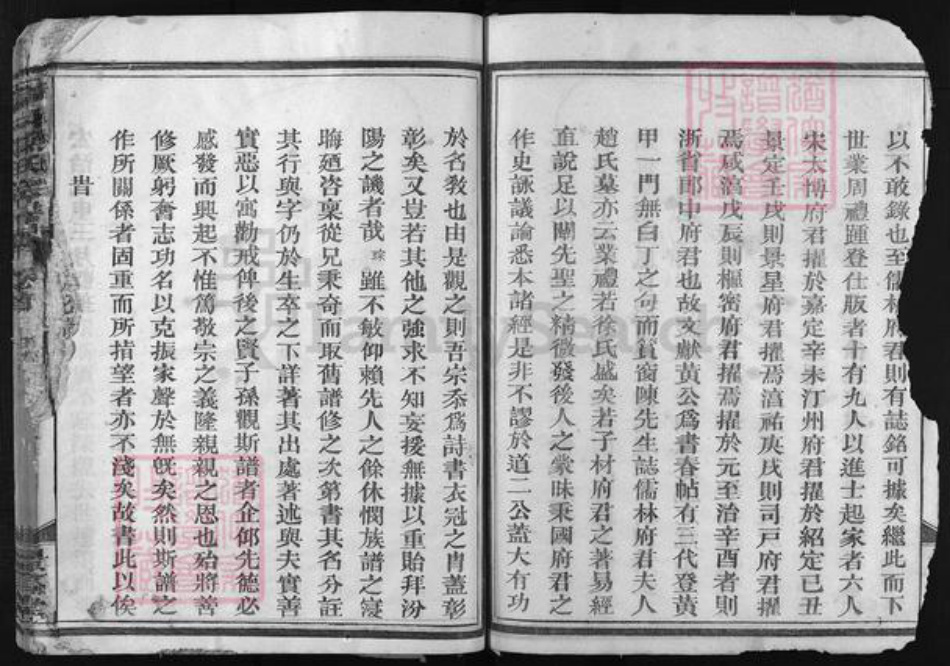 以不敢錄也至儒林府君則有誌銘可據矣繼此而下
世業周禮踵登仕版者十有九人以進士起家者六人
宋太博府君擢於嘉定辛未汀州府君擢於紹定己丑
景定壬戌則景星府君擢焉淳祐庚戌則司戸府君擢
焉咸淳戊辰則樞密府君擢焉擢於元至治辛酉者則
浙省郎中府君也故文獻黃公爲書春帖有三代登黃
甲一門無白丁之句而賁窗陳先生誌儒林府君夫人
趙氏墓亦云業禮若徐氏盛矣若子材府君之著易經
直說足以闡先聖之精微發後人之蒙昧秉國府君之
作史詠議論悉本諸經是非不謬於道二公蓋大有功
於名敎也由是觀之則吾宗忝爲詩書衣冠之胄蓋彰
彰矣又豈若其他之強求不知妄援無據以重貽拜汾
陽之譏者哉 雖不敏仰賴先人之餘休憫族譜之寖
晦廼咨稟從兄秉奇而取舊譜修之次第書其名分註
其行與字仍於生卒之下詳著其出處著述與夫實善
實惡以寓勸戒俾後之賢子孫觀斯譜者企仰先德必
感發而興起不惟篤敬宗之義隆親親之恩也始將善
修厥躬奮志功名以克振家聲於無旣矣然則斯譜之
作所關係者固重而所措望者亦不淺矣故書此以俟
昔
FamilySearch